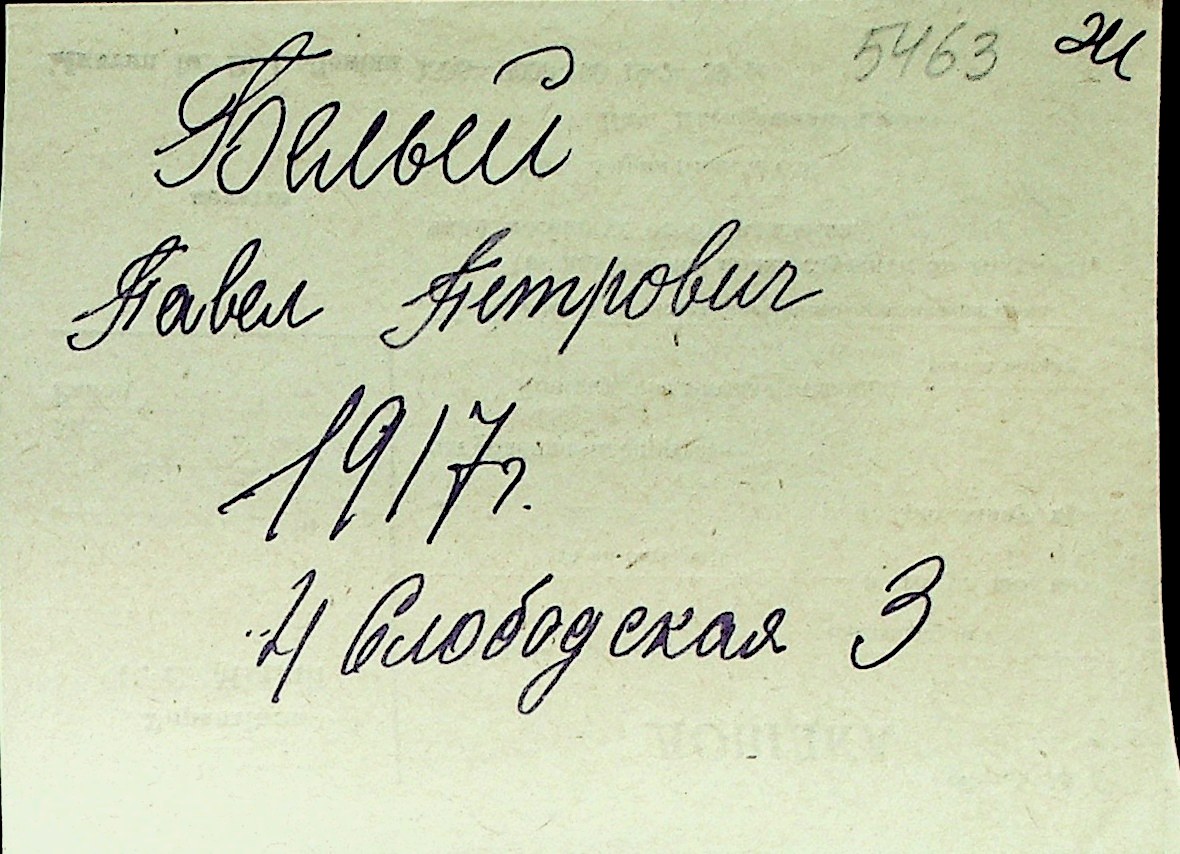 5463 ж
Белый
Павел Петрович
1917г.
4 Слободская 3